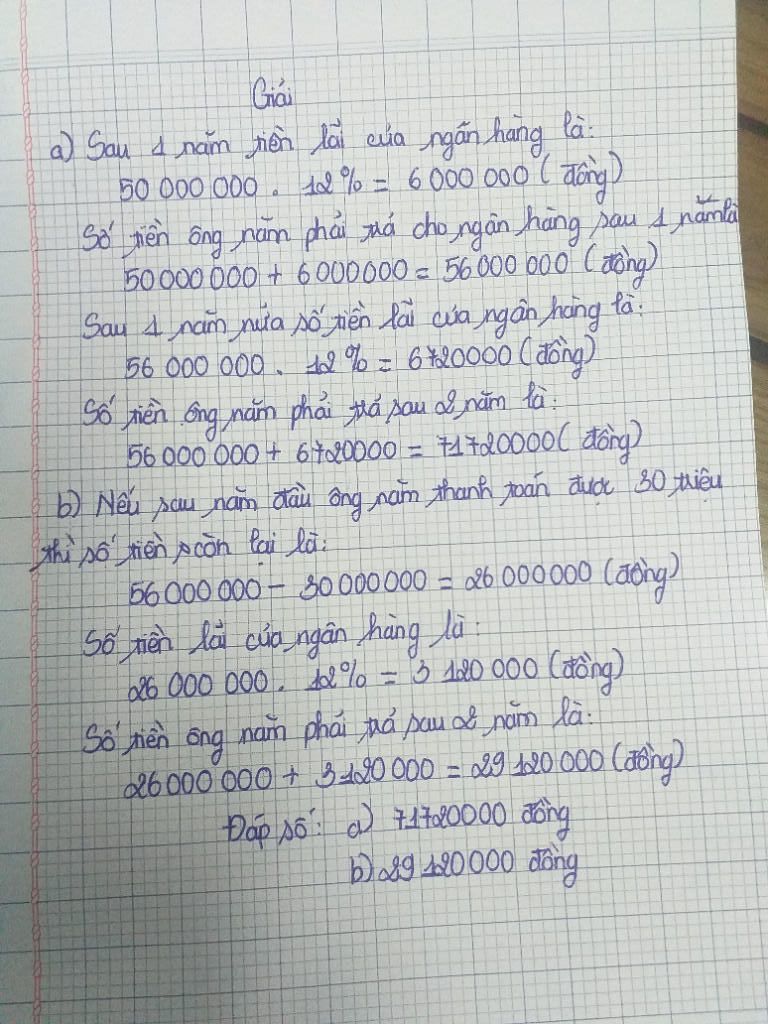 Giải
a) Sau 1 năm tiền lãi của ngân hàng là:
50 000 000 . 12% = 6 000 000 ( đồng)
Số tiền ông năm phải trả cho ngân hàng sau 1 năm là
50 000 000 + 6 000 000 = 56 000 000 (đồng)
Sau 1 năm nữa số tiền lãi của ngân hàng là:
56 000 000 . 12% = 6720000 (đồng)
Số tiền ông năm phải trả sau 2 năm là:
56 000 000 + 6720000 = 71720000( đồng)
b) Nếu sau năm đầu ông năm thanh toán được 30 triệu
thì số tiền còn lại là:
56 000 000 - 30 000 000 = 26 000 000 (đồng)
Số tiền lãi của ngân hàng là:
26 000 000 . 12% = 3 120 000 (đồng)
Số tiền ông năm phải trả sau 2 năm là:
26 000 000 + 3 120 000 = 29 120 000 (đồng)
Đáp số: a) 71720000 đồng
b) 29 120 000 đồng